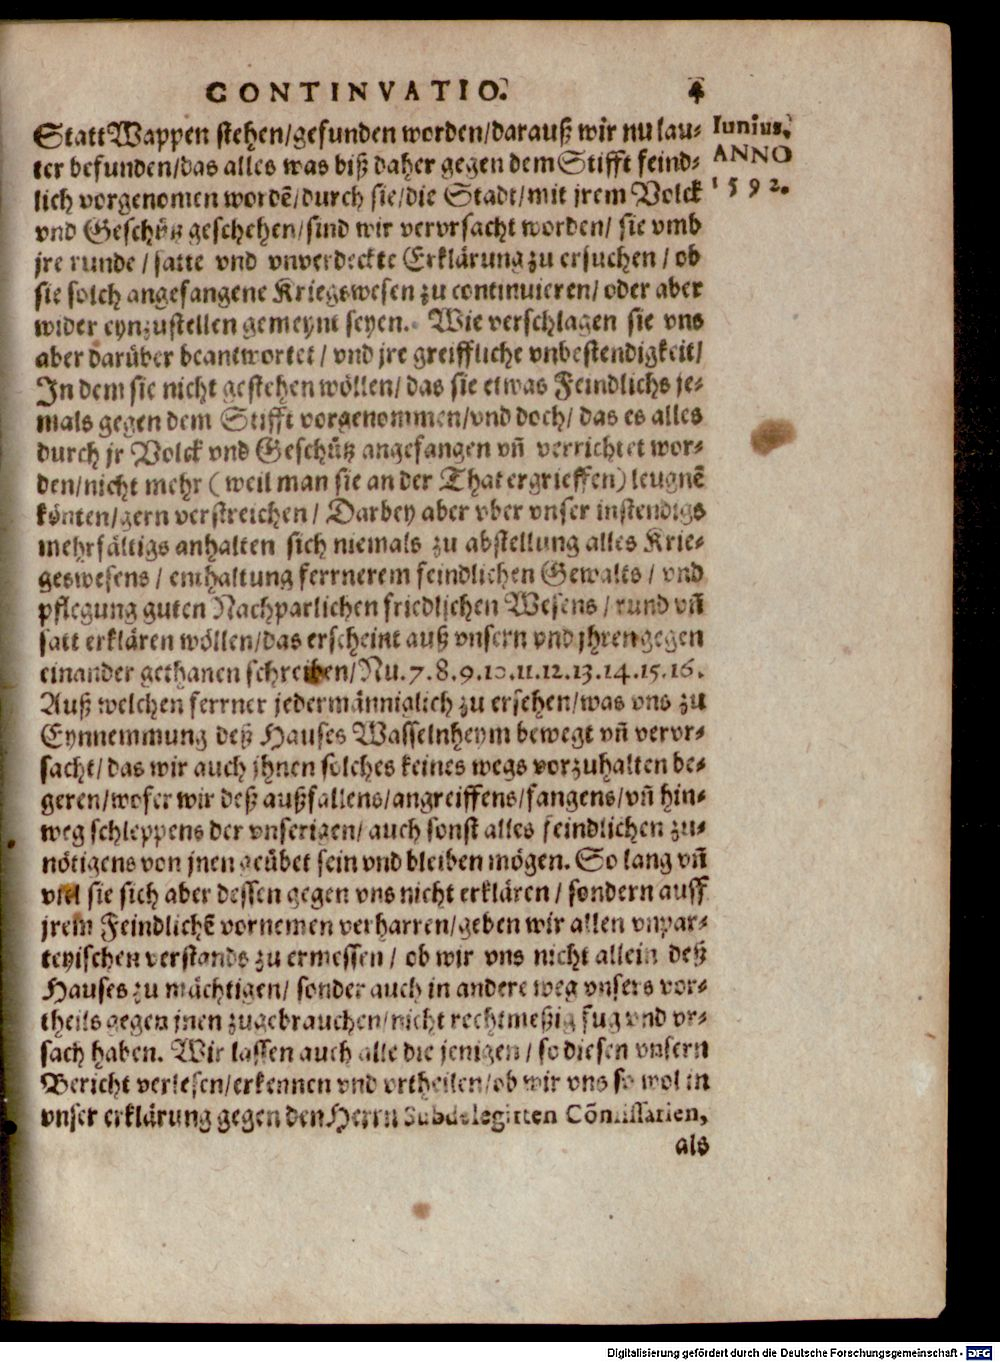 CONTINVATIO. 4
Statt Wappen stehen/gefunden worden/darauß wir nu lau-
ter befunden/das alles was biß daher gegen dem Stifft feind-
lich vorgenomen wordē/durch sie/die Stadt/mit jrem Volck
vnd Geschütz geschehen/sind wir vervrsacht worden/ sie vmb
jre runde / satte vnd vnverdeckte Erklärung zu ersuchen / ob
sie solch angefangene Kriegswesen zu continuieren/ oder aber
wider eynzustellen gemeynt seyen. Wie verschlagen sie vns
aber darüber beantwortet / vnd jre greiffliche vnbestendigkeit/
In dem sie nicht gestehen wöllen/ das sie etwas Feindlichs je-
mals gegen dem Stifft vorgenommen/vnd doch/ das es alles
durch jr Volck vnd Geschütz angefangen vñ verrichtet wor-
den/nicht mehr ( weil man sie an der That ergrieffen) leugnē
könten/gern verstreichen / Darbey aber vber vnser instendigs
mehrfältigs anhalten sich niemals zu abstellung alles Krie-
geswesens / enthaltung ferrnerem feindlichen Gewalts / vnd
pflegung guten Nachparlichen friedlichen Wesens / rund vñ
satt erklären wöllen/das erscheint auß vnsern vnd jhren gegen
einander gethanen schreiben/Nu.7.8.9.10.11.12.13.14.15.16.
Auß welchen ferrner jedermänniglich zu ersehen/was vns zu
Eynnemmung deß Hauses Wasselnheym bewegt vñ vervr-
sacht/ das wir auch jhnen solches keines wegs vorzuhalten be-
geren/wofer wir deß außfallens/angreiffens/fangens/vñ hin-
weg schleppens der vnserigen/ auch sonst alles feindlichen zu-
nötigens von jnen geübet sein vnd bleiben mögen. So lang vñ
viel sie sich aber dessen gegen vns nicht erklären / sondern auff
jrem Feindlichē vornemen verharren/geben wir allen vnpar-
teyischen verstands zu ermessen / ob wir vns nicht allein deß
Hauses zu mächtigen/ sonder auch in andere weg vnsers vor-
theils gegen jnen zugebrauchen/nicht rechtmeßig fug vnd vr-
sach haben. Wir lassen auch alle die jenigen / so diesen vnsern
Bericht verlesen/erkennen vnd vrtheilen/ob wir vns so wol in
vnser erklärung gegen den Herrn Subdelegirten Cōmissarien,
als
Iunius.
ANNO
1592.
Digitalisierung gefördert durch die Deutsche Forschungsgemeinschaft - DFG